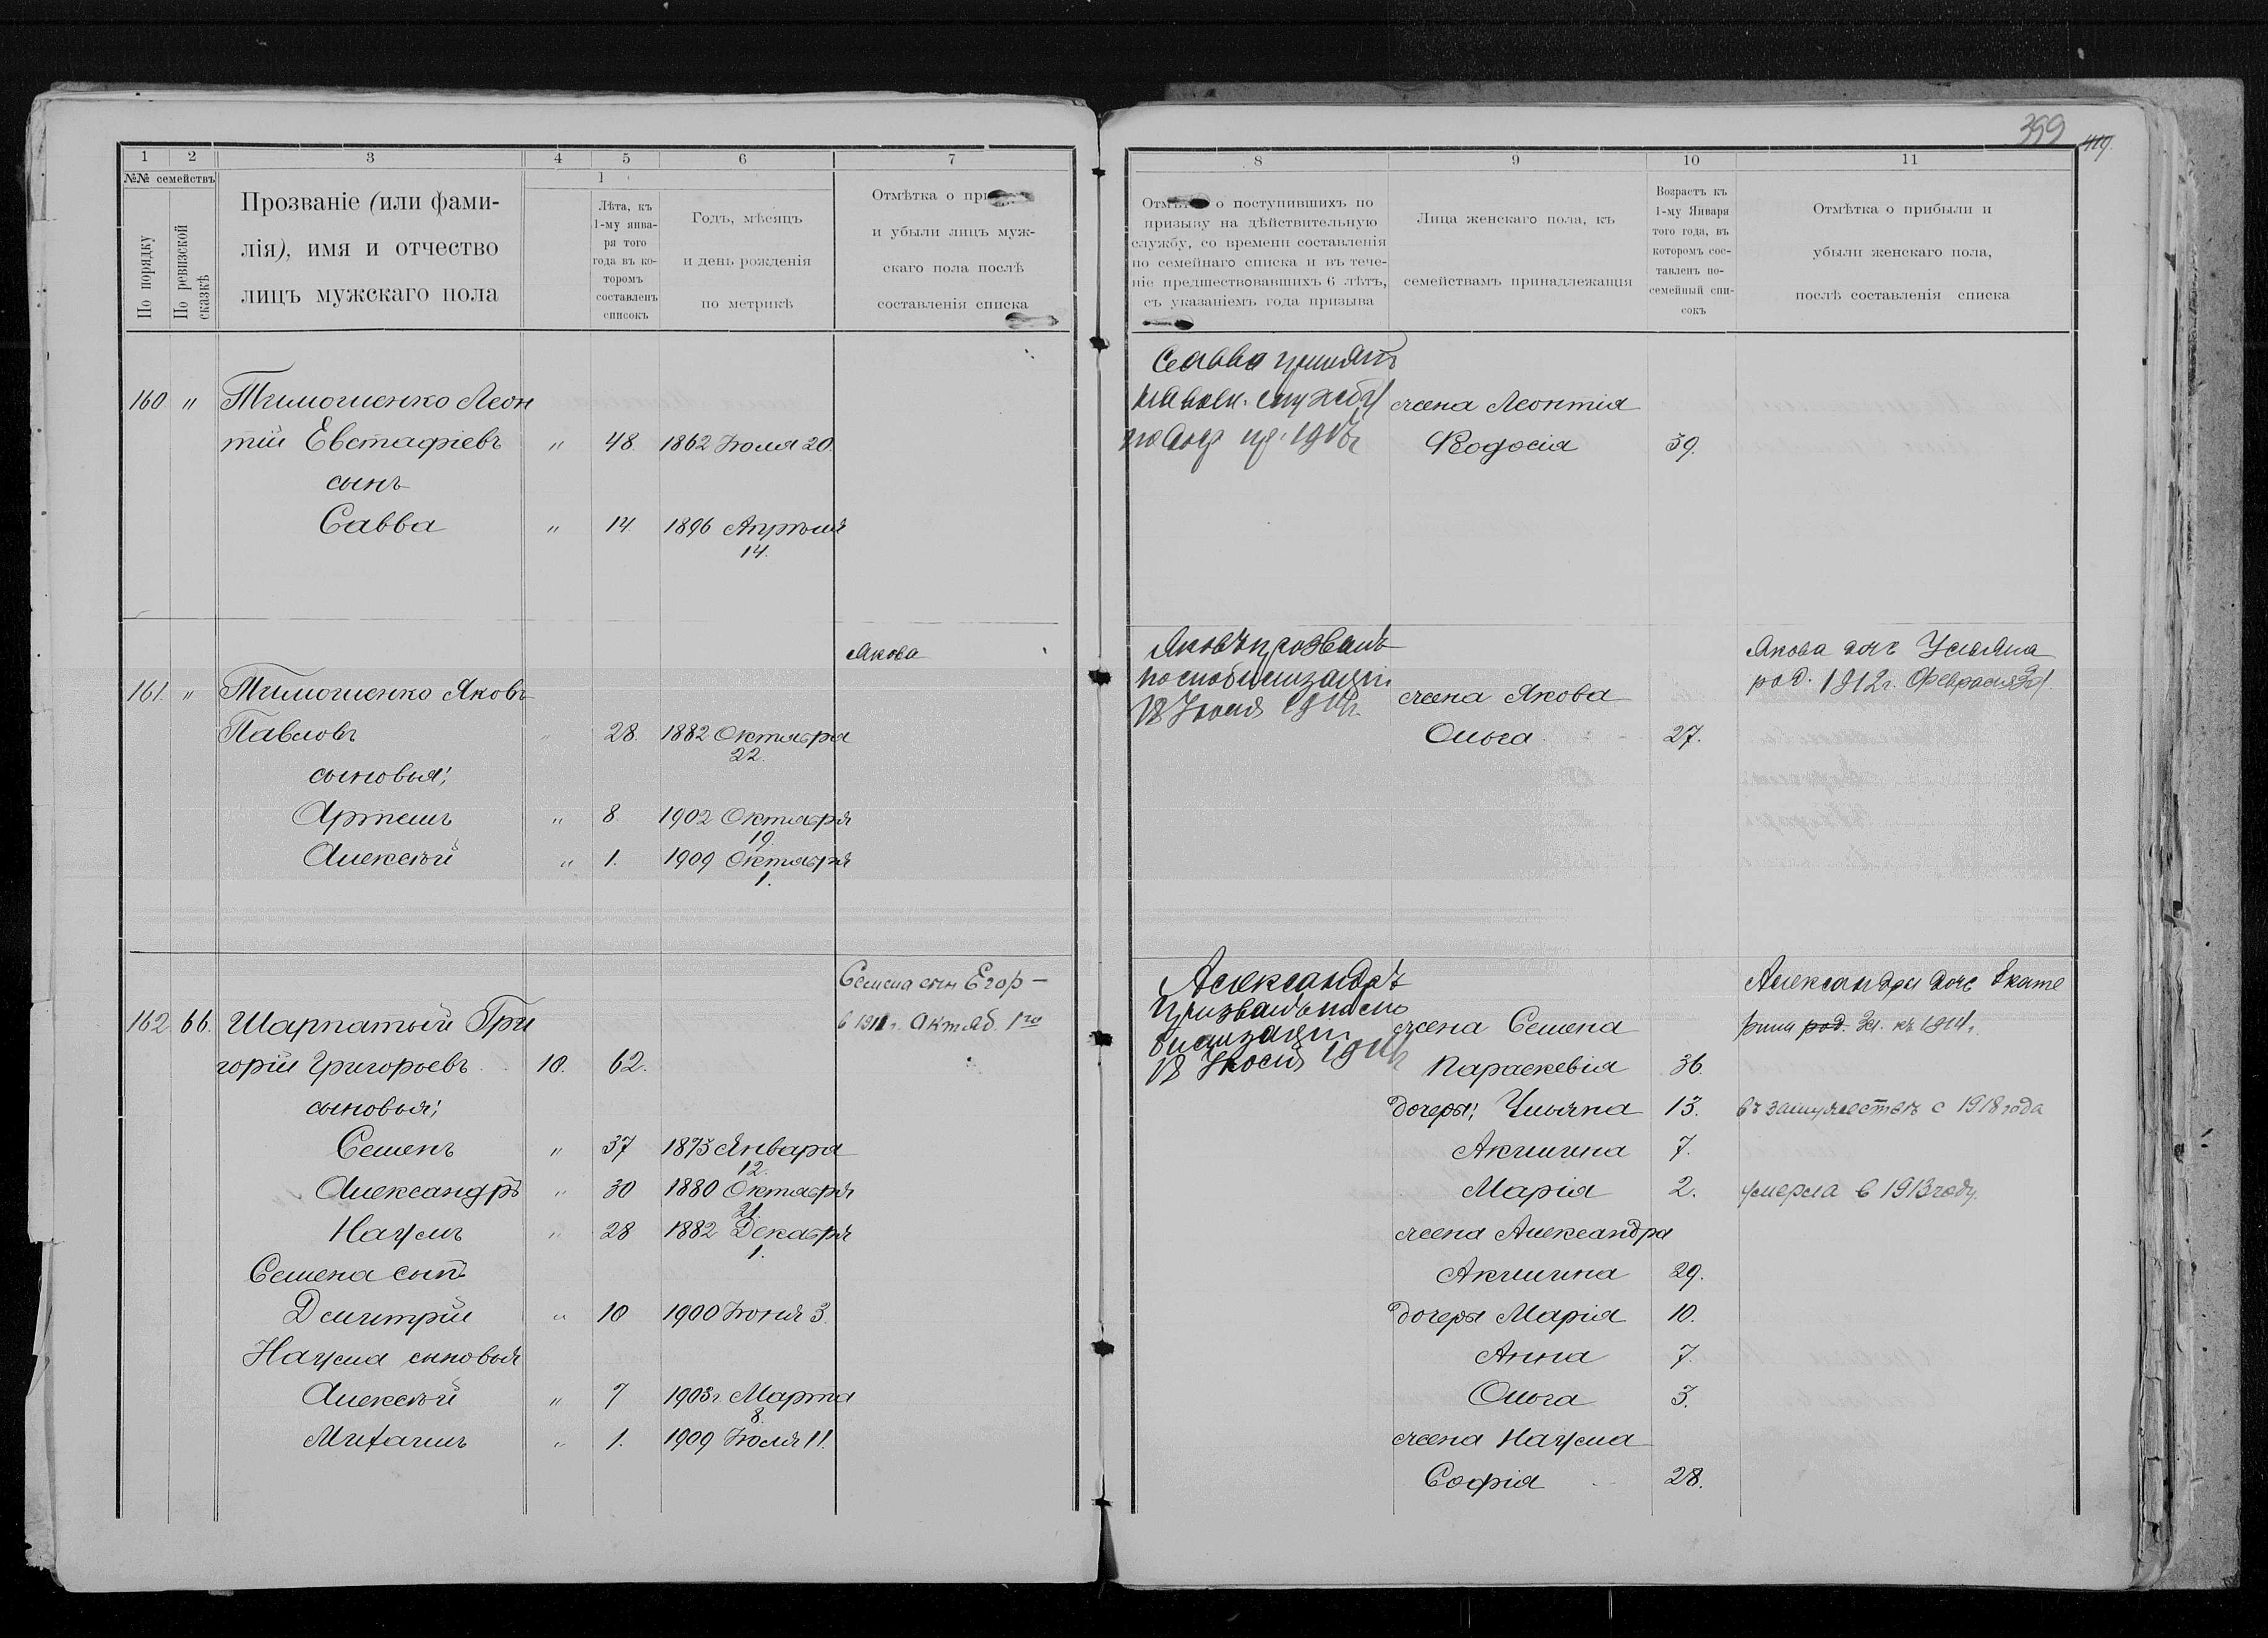 399
419
1 2 3 4 5 6 7
№№ семействъ
По порядку
По ревизской сказкѣ
Прозваніе (или фами-
лія), имя и отчество
лицъ мужскаго пола
1
Лѣта, къ
1-му янва-
ря того
года въ ко-
торомъ
составленъ
списокъ
Годъ, мѣсяцъ
и день рожденія
по метрикѣ
Отмѣтка о
и убыли лицъ муж-
скаго пола послѣ
составленія списка
160 " Тимошенко Леон
тій Евстафіевъ " 48. 1862 Іюля 20.
сынъ
Савва " 14. 1896 Апрѣля
14.
Якова
161. " Тимошенко Яковъ
Павловъ " 28. 1882 Октября
22.
сыновья;
Артемъ " 8. 1902 Октября
19.
Алексѣй " 1. 1909 Октября
1.
Семена сын Егор –
162 66. Шарпатый Гри
в 1911 г. Октяб. 1го
горій Григорьевъ 10. 62.
сыновья;
Семенъ " 37 1873 Января
12.
Александръ " 30 1880 Октября
21.
Наумъ " 28 1882 Декабря
1.
Семена сынъ
Дмитрій " 10 1900 Іюня 3.
Наума сыновья
Алексѣй " 7 1903г Марта
8.
Михаилъ " 1. 1909 Іюля 11.
8 9 10 11
о поступившихъ по
призыву на дѣйствительную
службу, со времени составленія
по семейнаго списка и въ тече-
ніе предшествовавшихъ 6 лѣтъ,
съ указаніемъ года призыва
Лица женскаго пола, къ
семействамъ принадлежащія
Возрастъ къ
1-му Января
того года, въ
которомъ сос-
тавленъ по-
семейный спи-
сокъ
Отмѣтка о прибыли и
убыли женскаго пола,
послѣ составленія списка
Савва принятъ
на воен. службу
жена Леонтія
Ѳеодосія 39.
Яковъ призванъ
по мобилизаціи
18 Іюля 1914г
Якова дочь Ульяна
род. 1912 г. Февраля
жена Якова
Ольга 27.
Александръ
призванъ по мо
билизаціи
18 Іюля 1914г
Александра дочь Екате
рина род. къ 1914.
жена Семена
Параскевія 36.
дочери; Ульяна 13. въ замужествѣ с 1918 года
Акилина 7.
Марія 2. умерла в 1913 году.
жена Александра
Акилина 29.
дочери Марія 10.
Анна 7.
Ольга 3.
жена Наума
Софія 28.